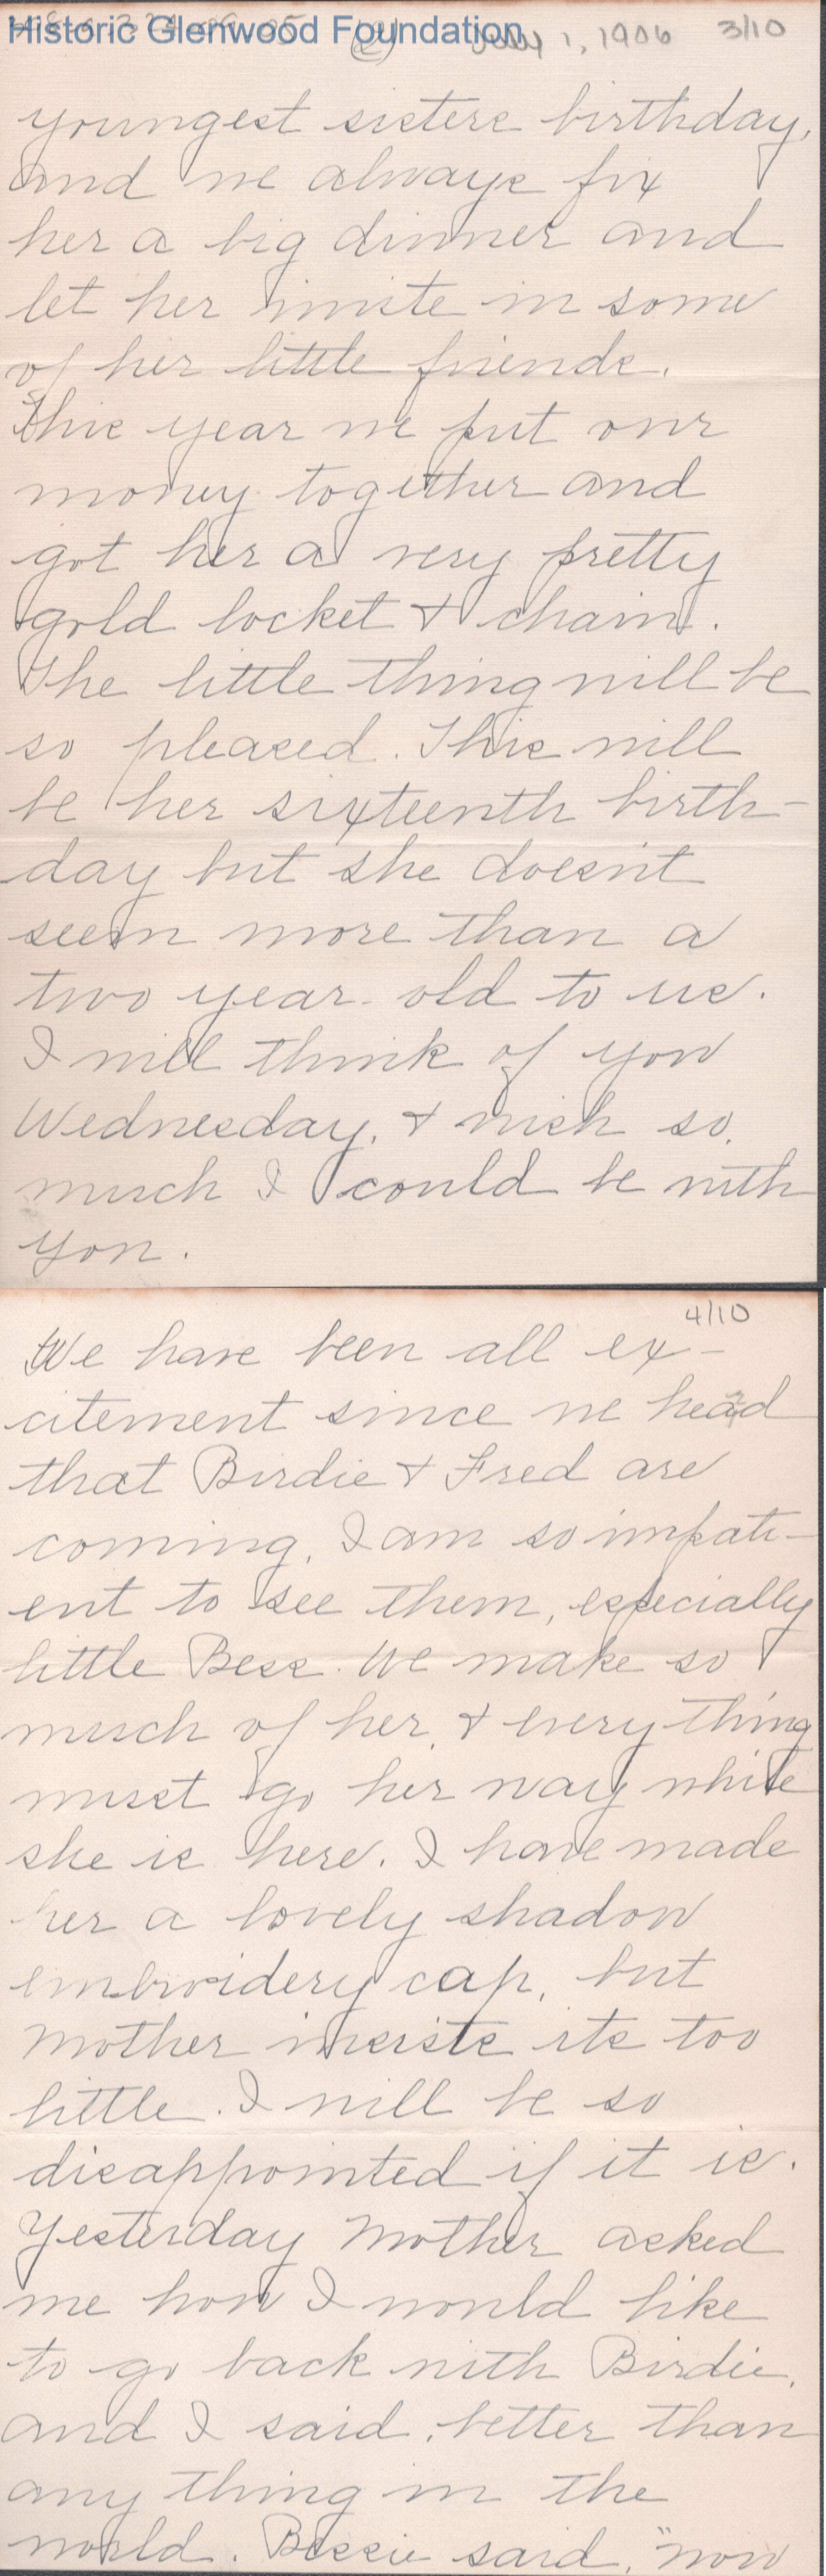 Historic Glenwood Foundation
(2) July 1, 1906 3/10
youngest sisters birthday,
and we always fix
her a big dinner and
let her invite in some
of her little friends.
This year we put our
money together and
got her a very pretty
gold locket & chain.
The little thing will be
so pleased. This will
be her sixteenth birth-
day but she doesn't
seem more than a
two year old to us.
I will think of you
Wednesday, & wish so
much I could be with
you.
4/10
We have been all ex-
citement since we heard
that Birdie & Fred are
coming. I am so impati-
ent to see them, especially
little Bess. We make so
much of her, & every thing
must go her way while
she is here. I have made
her a lovely shadow
embroidery cap, but
Mother insists its too
little. I will be so
disappointed if it is.
Yesterday Mother asked
me how I would like
to go back with Birdie,
and I said, better than
any thing in the
world. Bessie said, "now